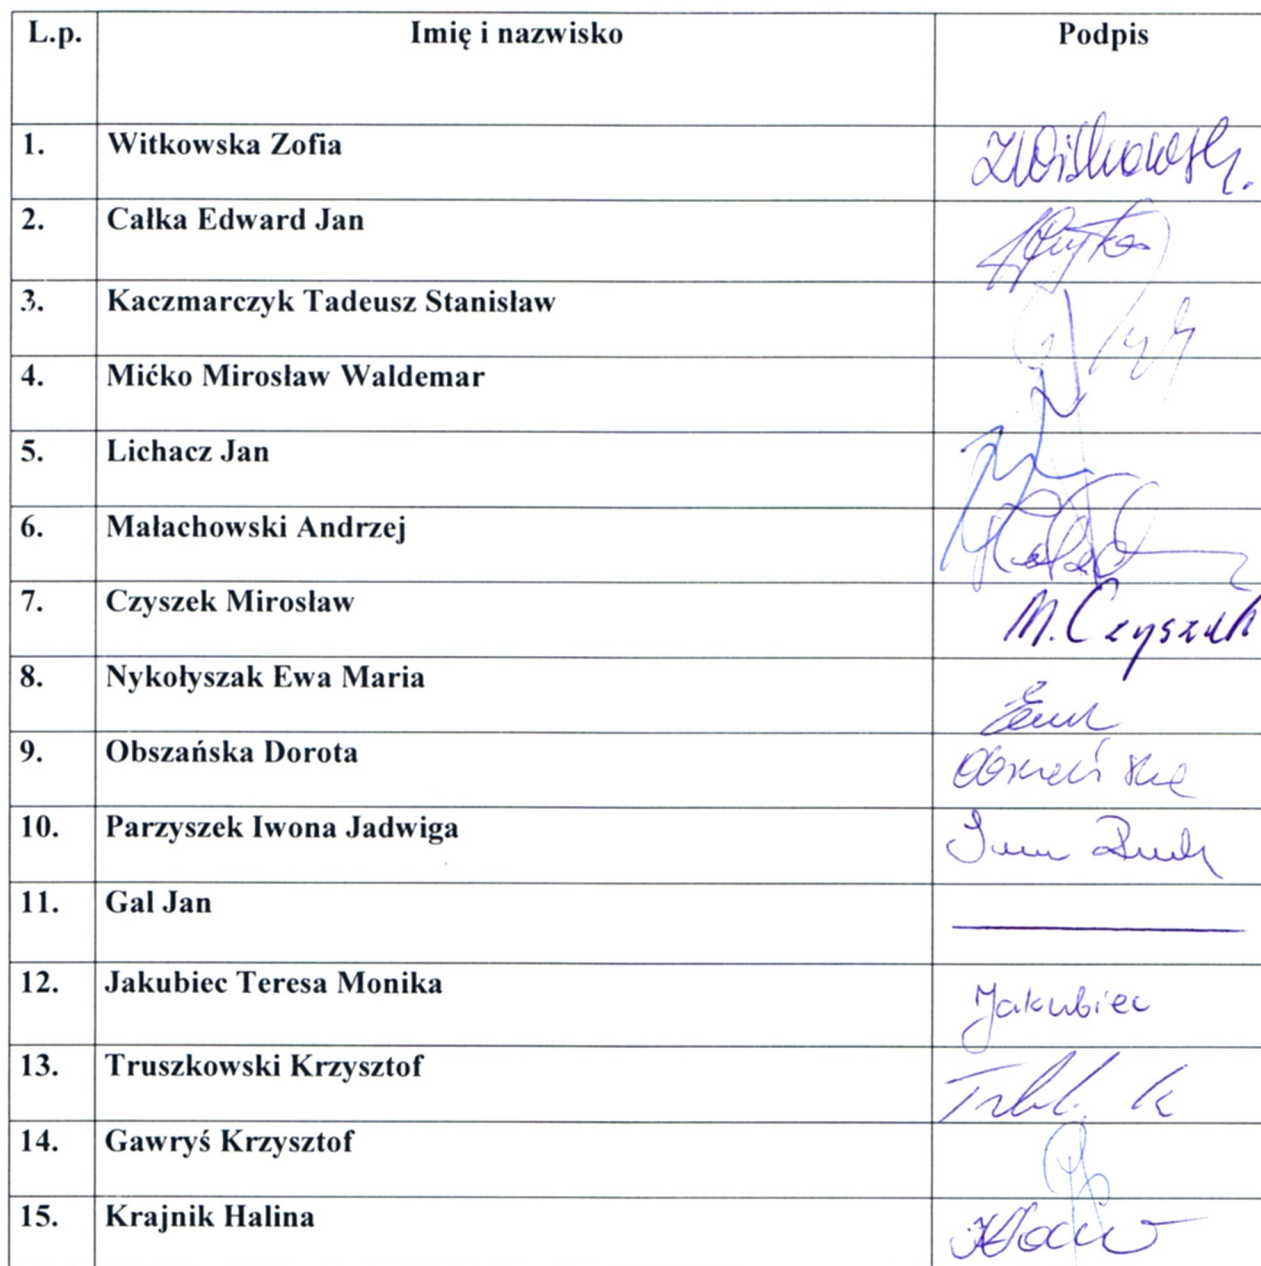 L.p. Imię i nazwisko Podpis
1. Witkowska Zofia
2. Całka Edward Jan
3. Kaczmarczyk Tadeusz Stanisław
4. Mićko Mirosław Waldemar
5. Lichacz Jan
6. Małachowski Andrzej
7. Czyszek Mirosław M. Czyszek
8. Nykołyszak Ewa Maria
9. Obszańska Dorota
10. Parzyszek Iwona Jadwiga
11. Gal Jan
12. Jakubiec Teresa Monika Jakubiec
13. Truszkowski Krzysztof
14. Gawryś Krzysztof
15. Krajnik Halina